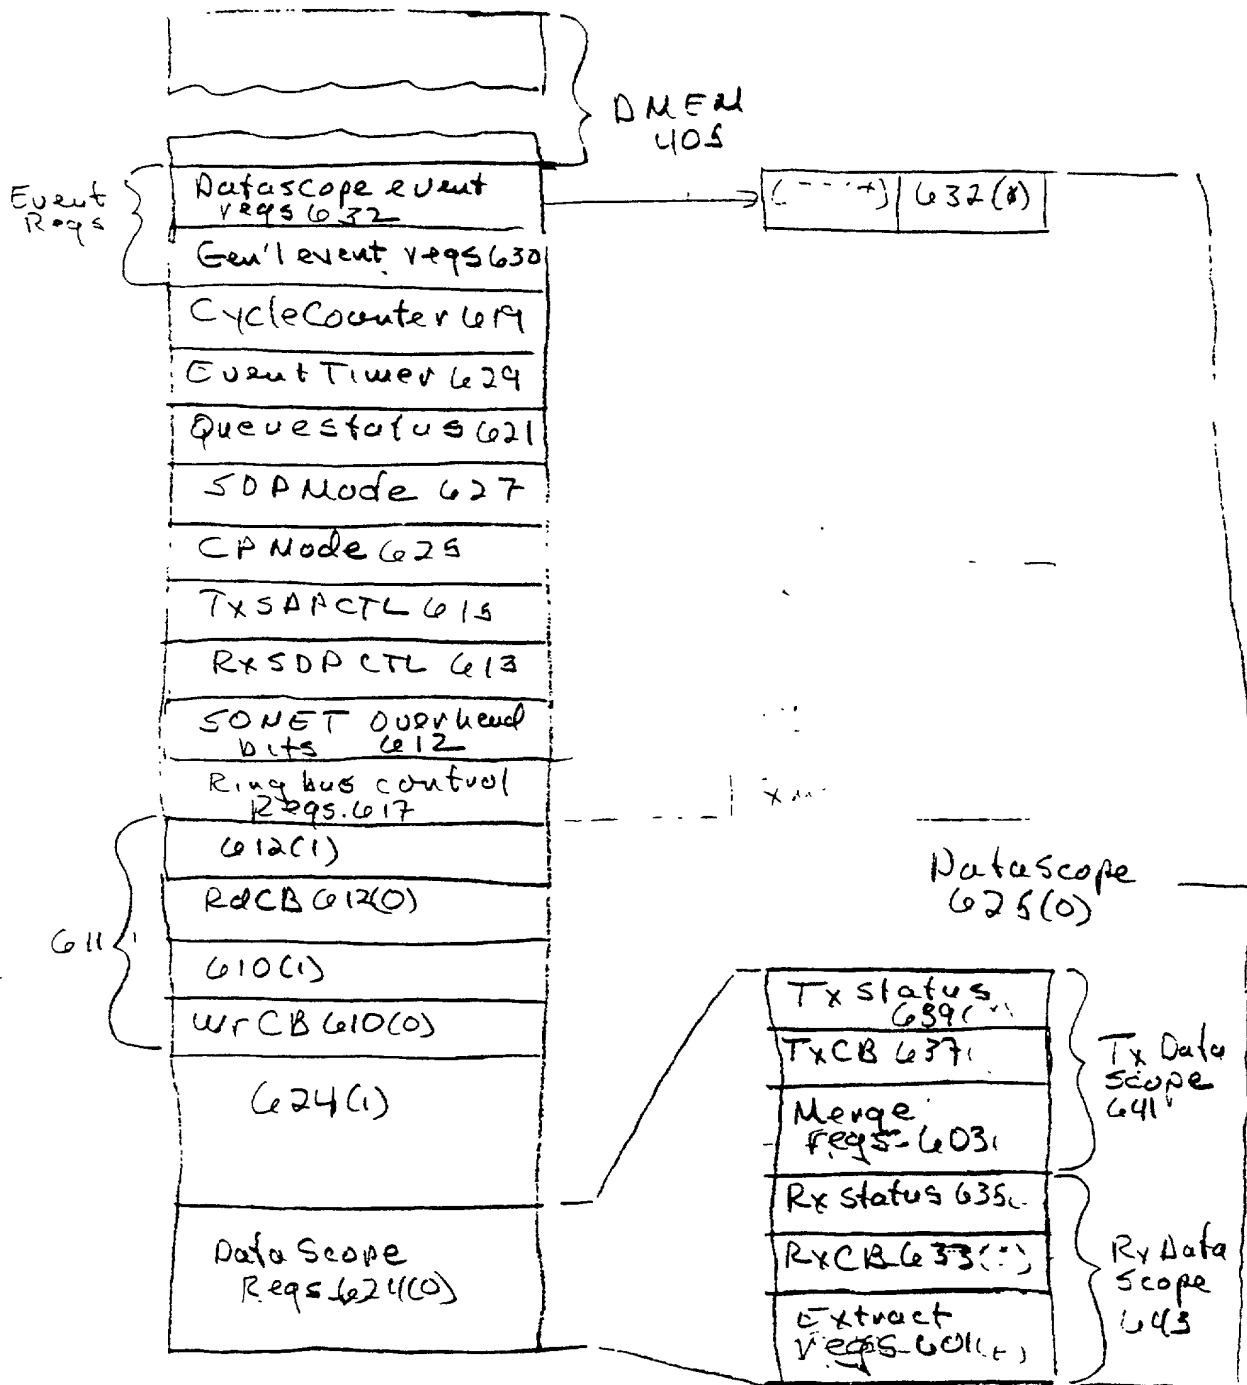 DMEM
405
Event
Regs
Datascope event
regs 632
632(0)
Gen'l event regs 630
CycleCounter 619
Event Timer 629
Queuestatus 621
SDPMode 627
CP Mode 625
TxSDPCTL 615
RxSDPCTL 613
SONET Overhead
bits 612
Ring bus control
Regs. 617
612(1)
RdCB 612(0)
611
610(1)
WrCB 610(0)
624(1)
Data Scope
Regs 624(0)
DataScope
625(0)
Tx status
639
TxCB 637
Merge
regs 603
Tx Data
scope
641
Rx status 635
RxCB 633
Extract
regs 601
Rx Data
scope
643